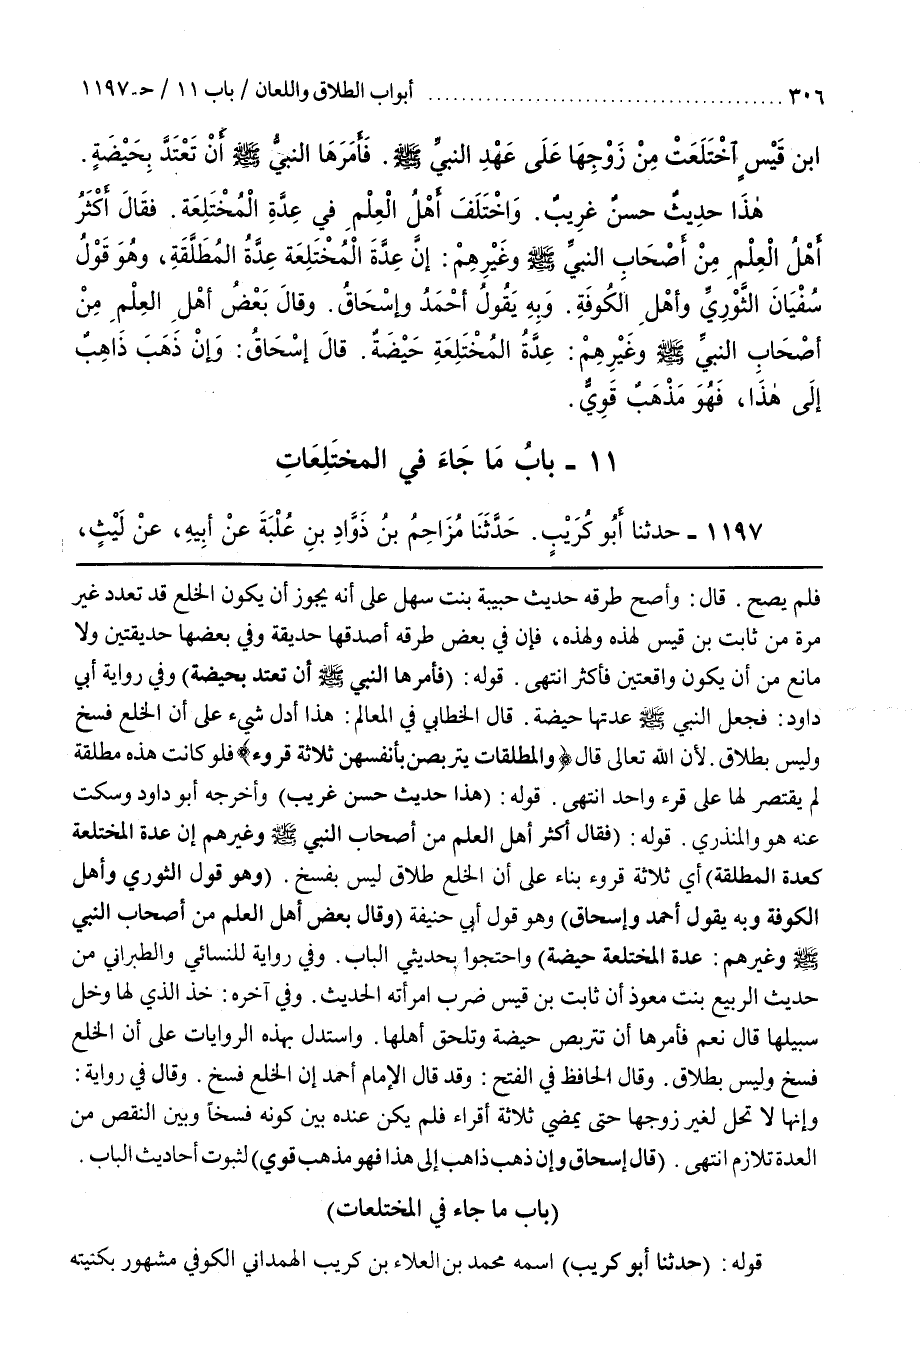 ٣٠٦ ........................................ أبواب الطلاق واللعان / باب ١١ / حـ ١١٩٧
ابن قَيْسٍ آخْتَلَعَتْ مِنْ زَوْجِهَا عَلَى عَهْدِ النبيِّ ﷺ. فَأَمَرَهَا النبيُّ ﷺ أَنْ تَعْتَدَّ بِحَيْضَةٍ.
هٰذَا حديثٌ حسنٌ غرِيبٌ. وَاخْتَلَفَ أَهْلُ الْعِلْمِ في عِدَّةِ الْمُخْتَلِعَة. فقَالَ أَكْثَرُ
أَهْلُ الْعِلْمِ مِنْ أَصْحَابِ النبيِّ ﷺ وغَيْرِهِمْ: إنَّ عِدَّةَ الْمُخْتَلِعَة عِدَّةُ المُطَلَّقَةِ، وهُوَ قَوْلُ
سُفْيَانَ الثَّوْرِيِّ وأَهْلِ الكُوفَةِ. وَبِهِ يَقُولُ أحْمَدُ وإسْحَاقُ. وقالَ بَعْضُ أهْلِ العِلْمِ مِنْ
أصْحَابِ النبيِّ ﷺ وغَيْرِهِمْ: عِدَّةُ المُخْتَلِعَةِ حَيْضَةٌ. قالَ إسْحَاقُ: وَإنْ ذَهَبَ ذَاهِبٌ
إلَى هٰذَا، فَهُوَ مَذْهَبٌ قَوِيٌّ.
١١ - بابُ مَا جَاءَ في المختَلِعَاتِ
١١٩٧ - حدثنا أَبُو كُرَيْبٍ. حَدَّثَنَا مُزَاحِمُ بنُ ذَوَّادِ بنِ عُلْبَةَ عنْ أبِيهِ، عنْ لَيْثٍ،
فلم يصح. قال: وأصح طرقه حديث حبيبة بنت سهل على أنه يجوز أن يكون الخلع قد تعدد غير
مرة من ثابت بن قيس لهذه ولهذه، فإن في بعض طرقه أصدقها حديقة وفي بعضها حديقتين ولا
مانع من أن يكون واقعتين فأكثر انتهى. قوله: (فأمرها النبي ﷺ أن تعتد بحيضة) وفي رواية أبي
داود: فجعل النبي ﷺ عدتها حيضة. قال الخطابي في المعالم: هذا أدل شيء على أن الخلع فسخ
وليس بطلاق. لأن الله تعالى قال ﴿والمطلقات يتربصن بأنفسهن ثلاثة قروء﴾ فلو كانت هذه مطلقة
لم يقتصر لها على قرء واحد انتهى. قوله: (هذا حديث حسن غريب) وأخرجه أبو داود وسكت
عنه هو والمنذري. قوله: (فقال أكثر أهل العلم من أصحاب النبي ﷺ وغيرهم إن عدة المختلعة
كعدة المطلقة) أي ثلاثة قروء بناء على أن الخلع طلاق ليس بفسخ. (وهو قول الثوري وأهل
الكوفة وبه يقول أحمد وإسحاق) وهو قول أبي حنيفة (وقال بعض أهل العلم من أصحاب النبي
ﷺ وغيرهم: عدة المختلعة حيضة) واحتجوا بحديثي الباب. وفي رواية للنسائي والطبراني من
حديث الربيع بنت معوذ أن ثابت بن قيس ضرب امرأته الحديث. وفي آخره: خذ الذي لها وخل
سبيلها قال نعم فأمرها أن تتربص حيضة وتلحق أهلها. واستدل بهذه الروايات على أن الخلع
فسخ وليس بطلاق. وقال الحافظ في الفتح: وقد قال الإمام أحمد إن الخلع فسخ. وقال في رواية:
وإنها لا تحل لغير زوجها حتى يمضي ثلاثة أقراء فلم يكن عنده بين كونه فسخاً وبين النقص من
العدة تلازم انتهى. (قال إسحاق وإن ذهب ذاهب إلى هذا فهو مذهب قوي) لثبوت أحاديث الباب.
(باب ما جاء في المختلعات)
قوله: (حدثنا أبو كريب) اسمه محمد بن العلاء بن كريب الهمداني الكوفي مشهور بكنيته